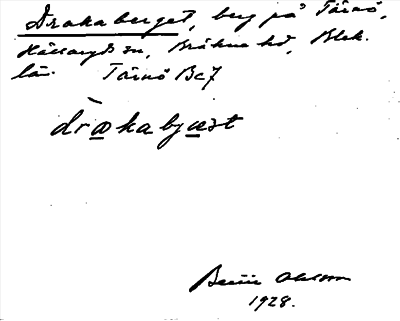 Drakaberget, berg på Tärnö,
Hällaryds sn, Bräkne hd, Blek.
län. Tärnö Bc7
dràkabjæst
Bertil Ohlsson
1928.